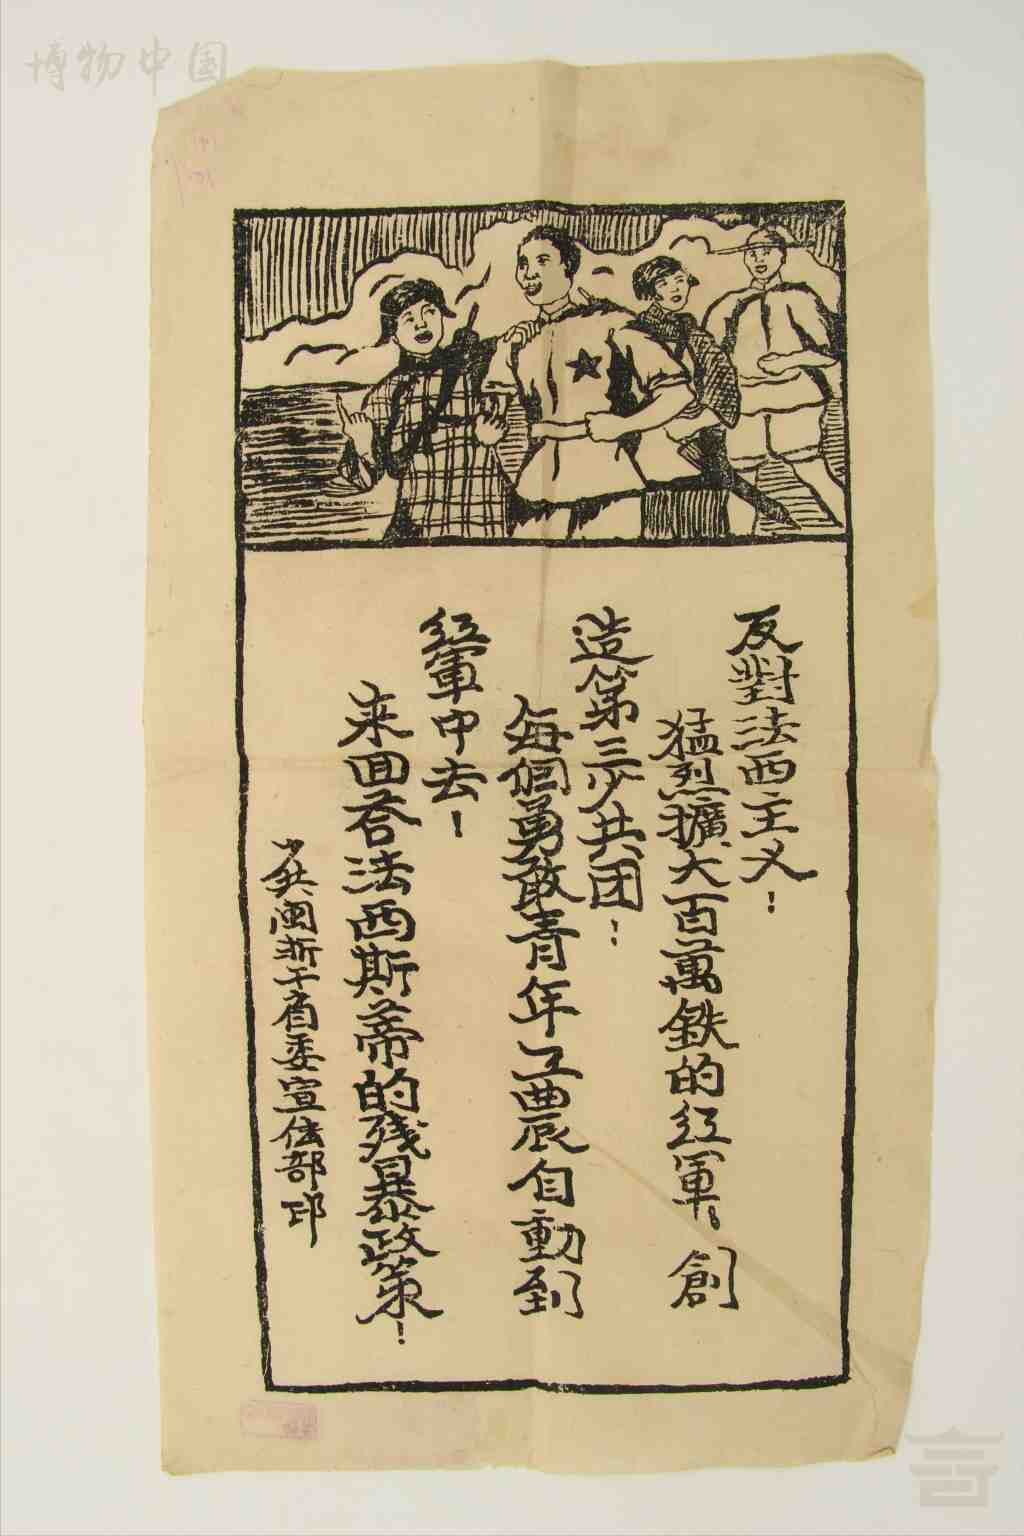 博物中国
反對法西主义！
猛烈擴大百萬鉄的红軍！創
造第三少共团！
每個勇敢青年工農自動到
红軍中去！
来回荅法西斯蒂的残暴政策！
少共闽浙干省委宣传部印